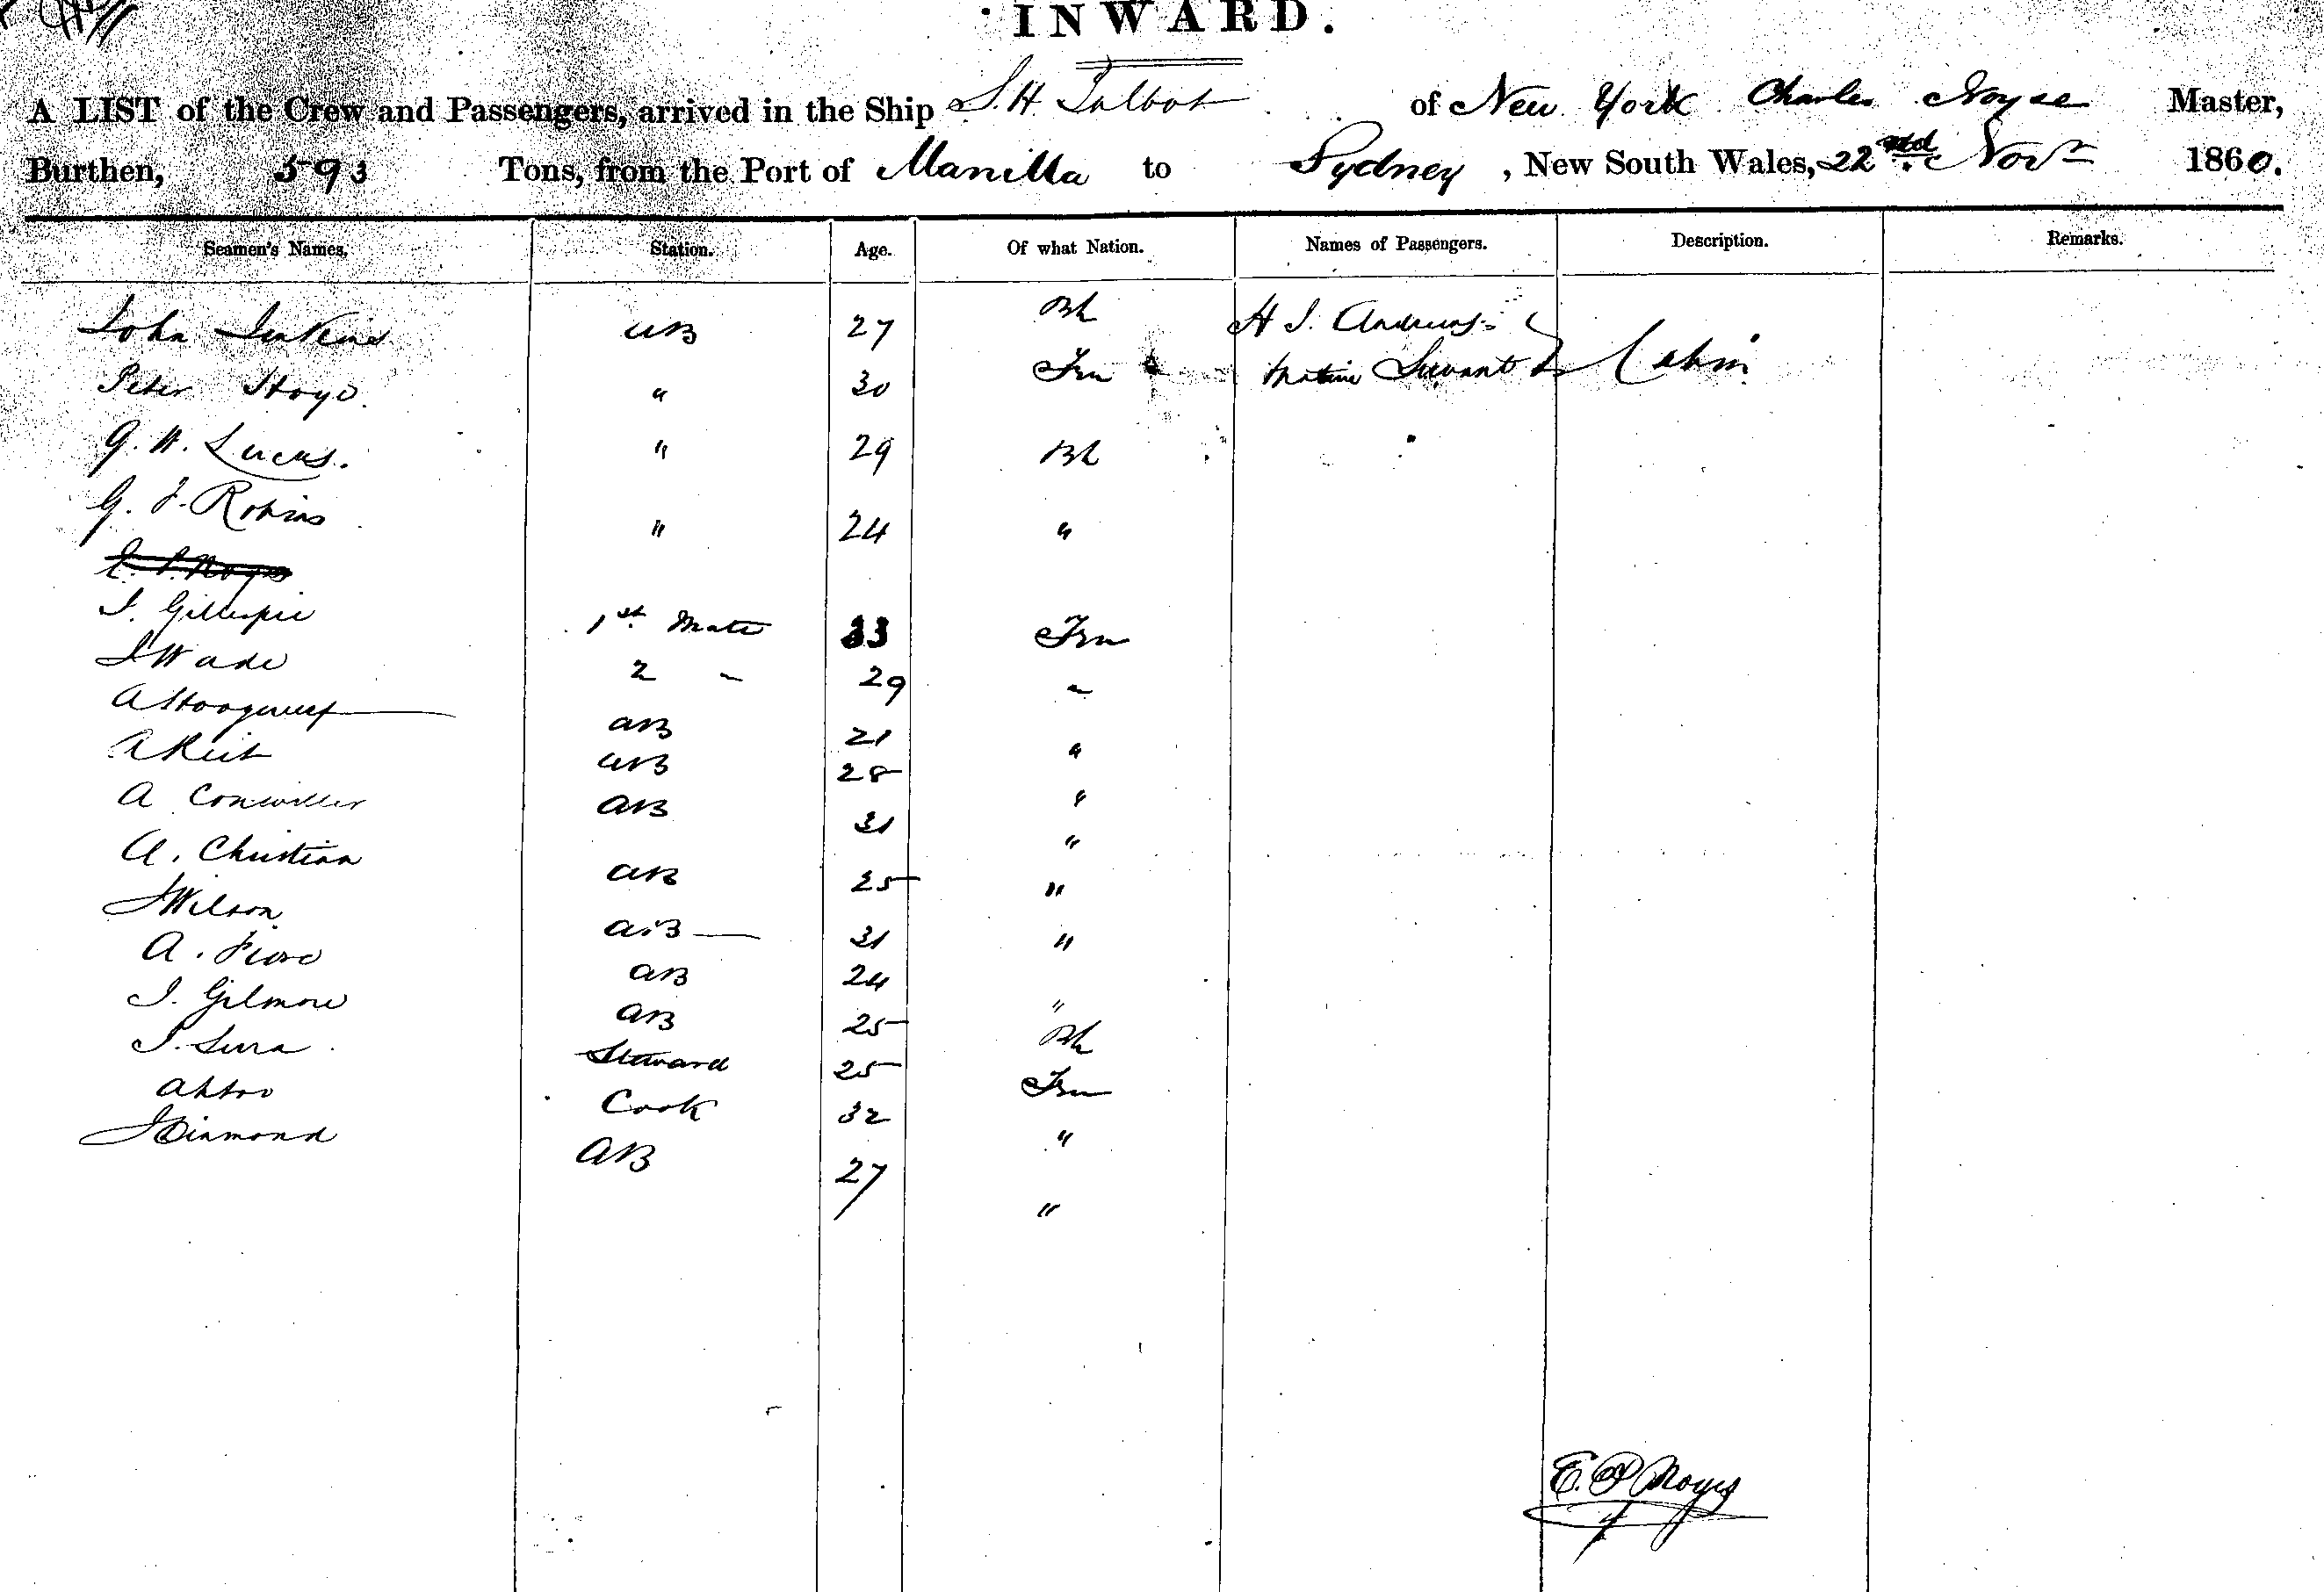 INWARD.
A LIST of the Crew and Passengers, arrived in the Ship S. H. Talbot of New York Charles Noyse Master,
Burthen, 593 Tons, from the Port of Manilla to Sydney, New South Wales, 22nd Novr 1860.
Seamen's Names. Station. Age. Of what Nation. Names of Passengers. Description. Remarks.
John Jenkins AB 27 Bh H J. Andrews
Peter Hoyo " 30 Frn Native Servant Cabin
G. W. Lucas. " 29 Bh
G. J. Robins " 24 "
J. Gillespie 1st Mate 33 Frn
J Wade 2 " 29 "
A Hoogwerf AB 21 "
A Reit AB 28 "
A AB 31 "
A. Christian AB 25 "
J Wilson A.B 31 "
A. AB 24 "
J. Gilmore AB 25 Bh
J. Steward 25 Frn
Cook 32 "
J Diamond AB 27 "
E. P Noyes